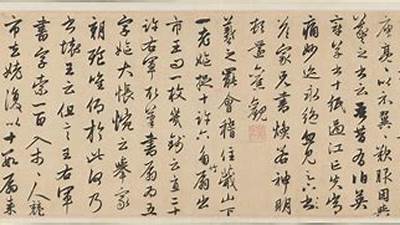 庾亮以示翼歎服因與
羲之書云吾昔有伯英
章草十紙過江亡失常
痛妙迹永絕忽見足下
答家兄書煥若神明
頓還舊觀
羲之罷會稽住蕺山下
一老姥捉十許六角竹扇出
市王問一枚幾錢云直二十
許右軍取筆書扇扇為五
字姥大悵惋云舉家
朝飧唯仰於此何乃
書壞王云但言王右軍
書字索一百入市市人競
市去姥復以十數扇來